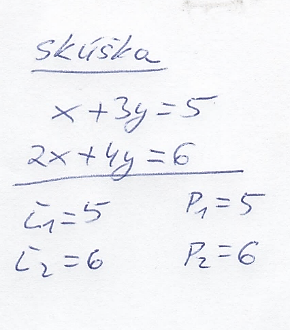 skúška
x+3y=5
2x+4y=6
Ľ₁=5 P₁=5
Ľ₂=6 P₂=6